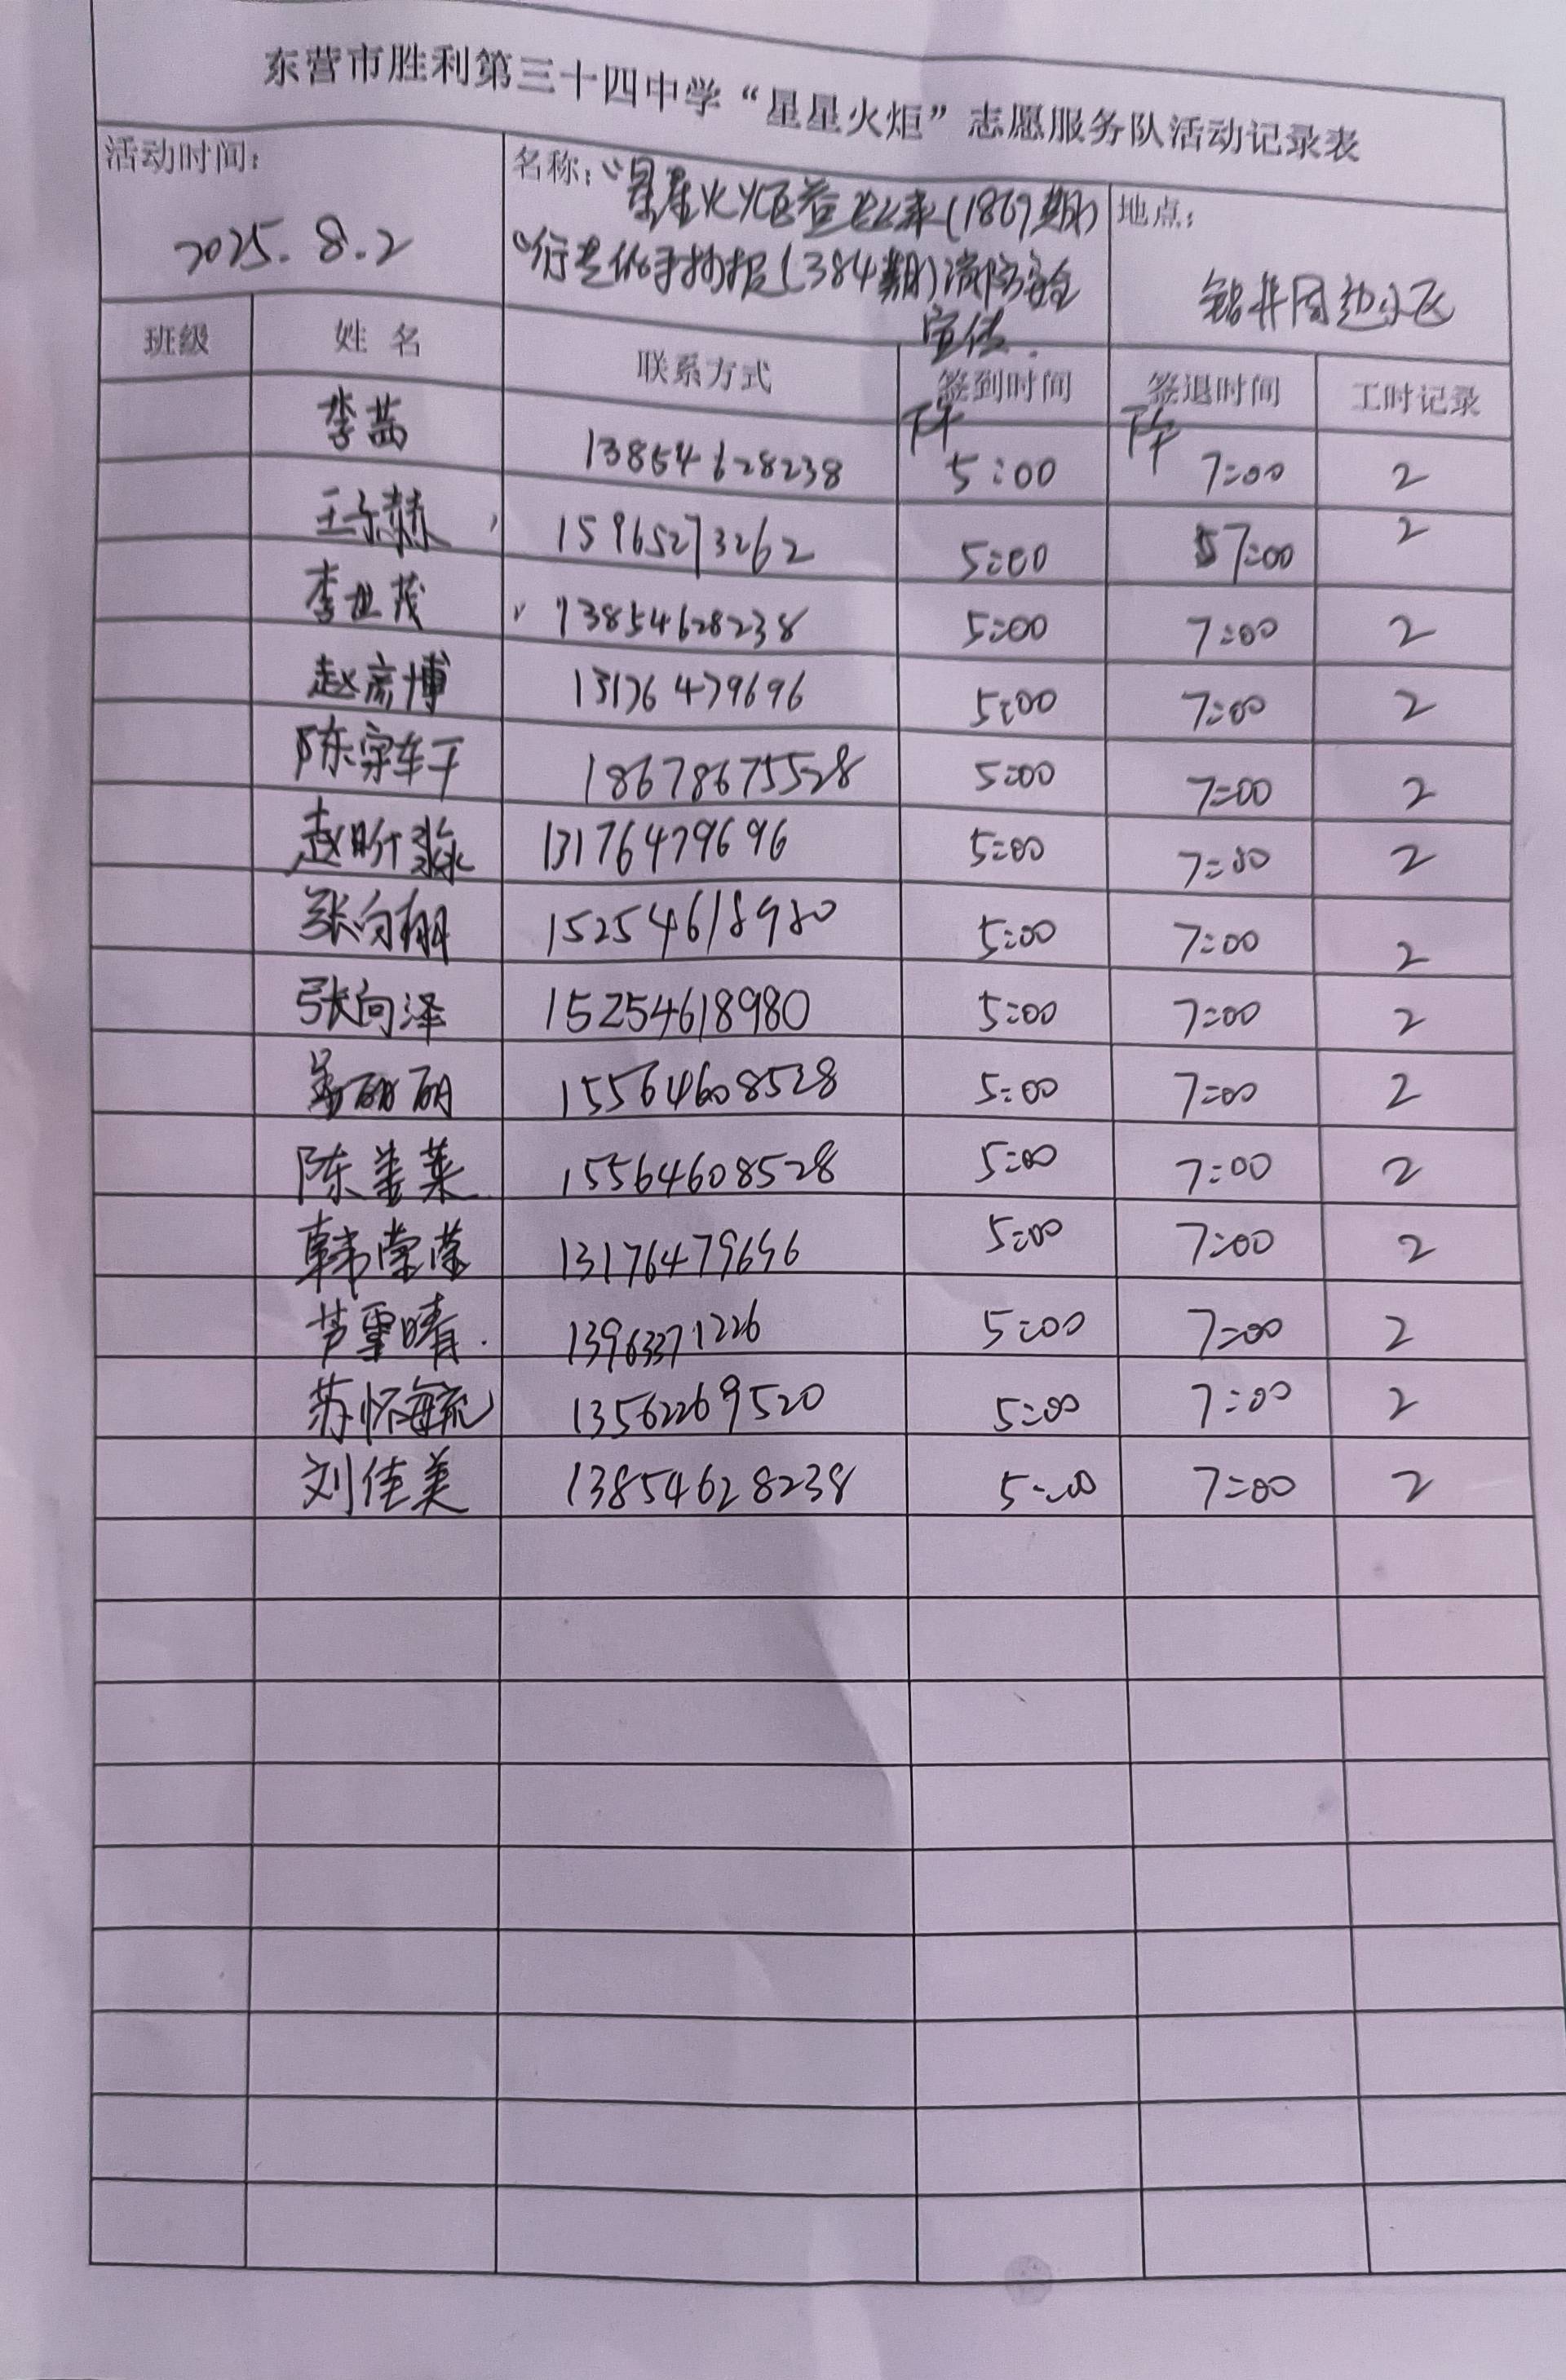 东营市胜利第三十四中学“星星火炬”志愿服务队活动记录表
活动时间: 名称: “星星火炬益起来(1867期) 地点:
2025. 8. 2 手抄报(384期)消防安全 钻井周边小区
宣传.
班级 姓名 联系方式 签到时间 签退时间 工时记录
李茜 13854628238 下午 5:00 下午 7:00 2
王乐赫 15965273262 5:00 7:00 2
李世茂 13854628238 5:00 7:00 2
赵彦博 13176479696 5:00 7:00 2
陈宗 18678675528 5:00 7:00 2
赵昕淼 13176479696 5:00 7:00 2
张向栩 15254618980 5:00 7:00 2
张向泽 15254618980 5:00 7:00 2
丽丽 15564608528 5:00 7:00 2
陈美莱 15564608528 5:00 7:00 2
韩荣荣 13176479696 5:00 7:00 2
芦雪晴. 13963371226 5:00 7:00 2
苏怀毓 13562269520 5:00 7:00 2
刘佳美 13854628238 5:00 7:00 2